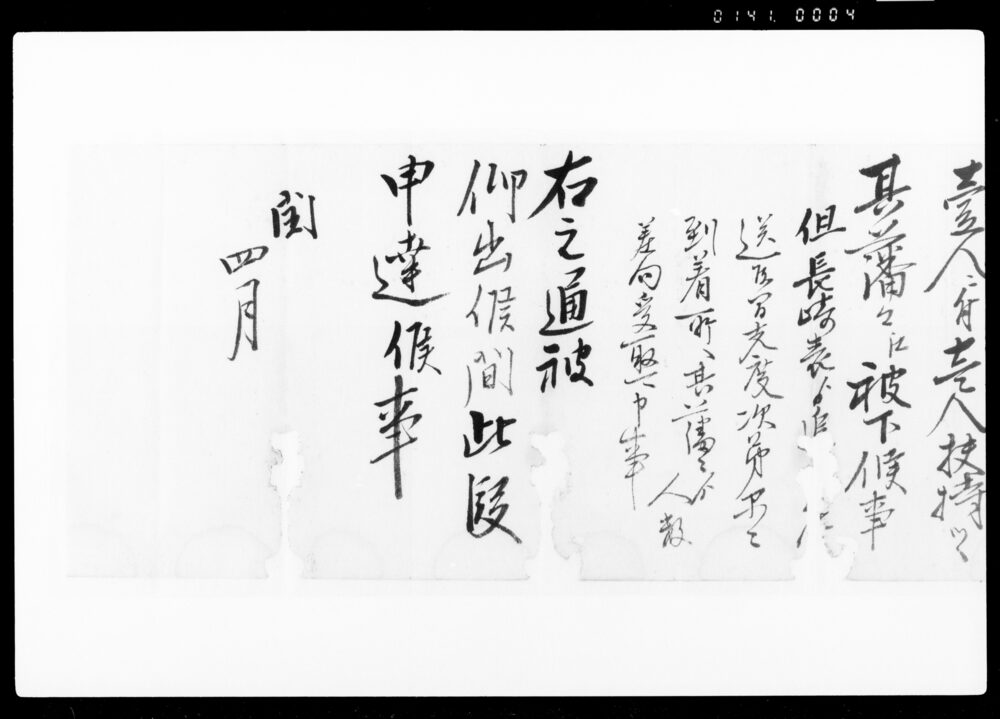 0141.0004
壹人ニ付壹人扶持ツヽ
其藩々江被下候事
但長崎表ゟ追
送支度次第早々
到着所へ其藩々ゟ人数
差向受取可申事
右之通被
仰出候間此段
申達候事
閏
四月